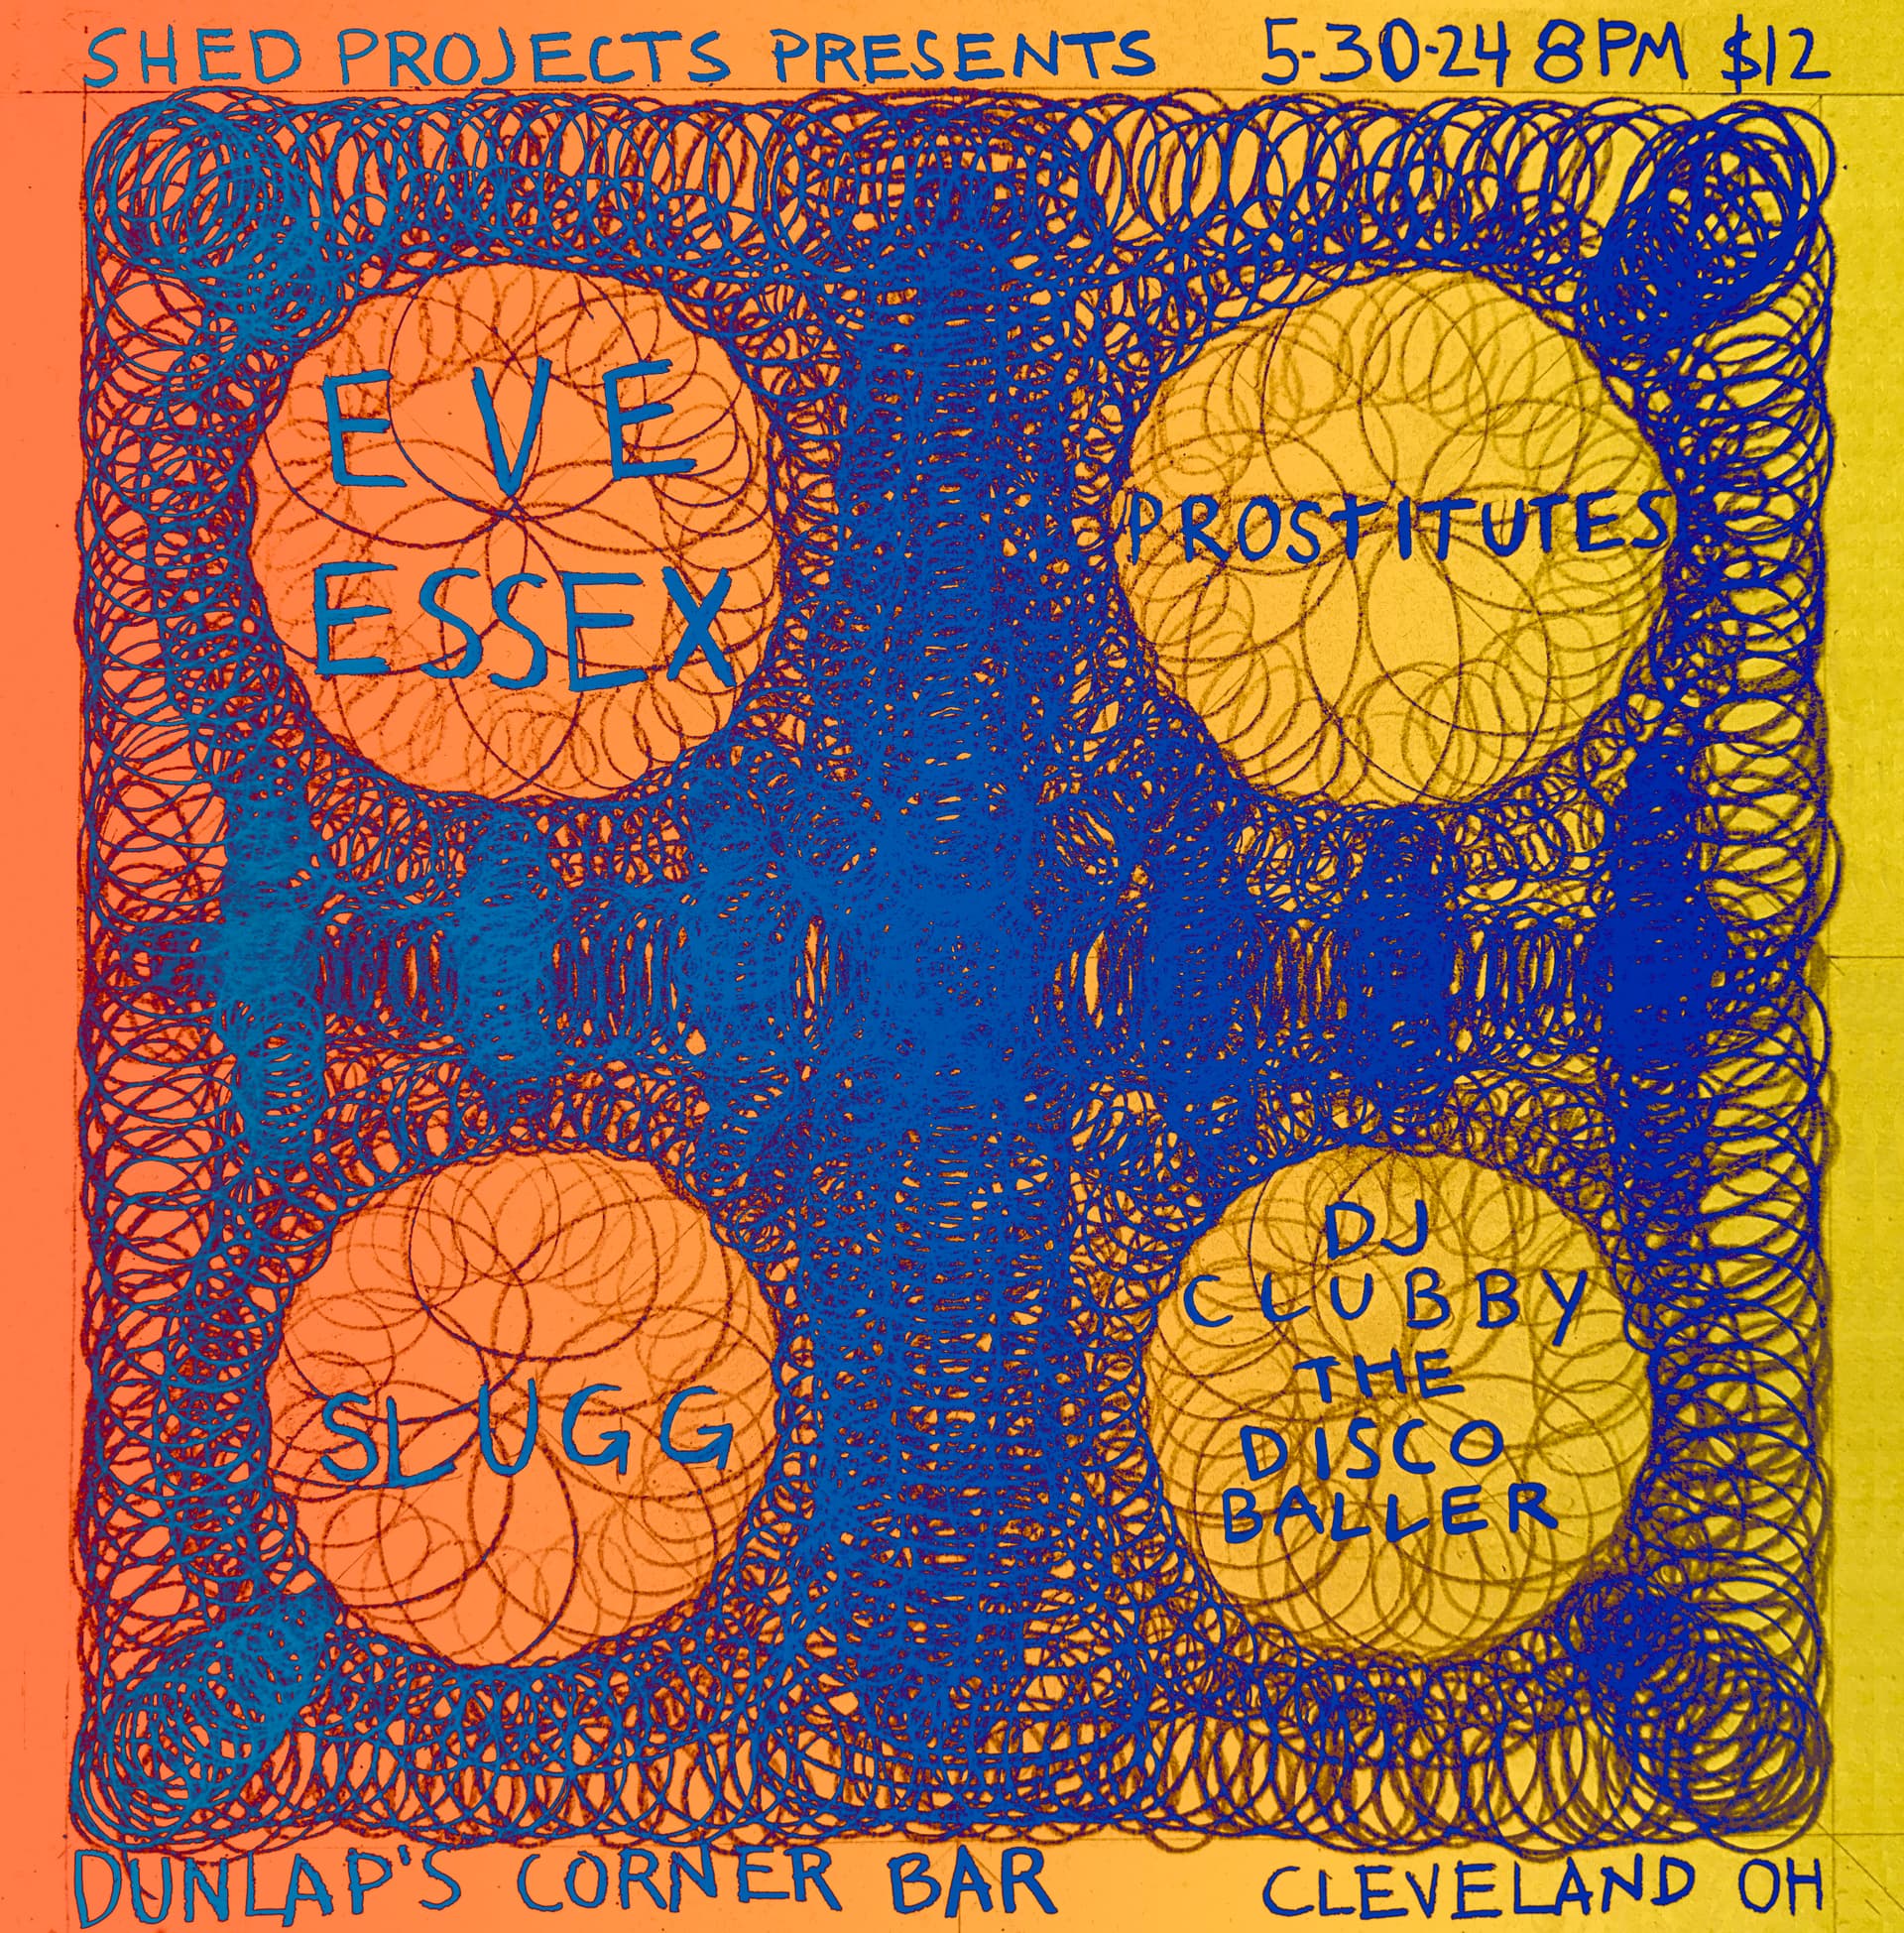 SHED PROJECTS PRESENTS 5-30-24 8PM $12
EVE
ESSEX
PROSTITUTES
SLUGG
DJ
CLUBBY
THE
DISCO
BALLER
DUNLAP'S CORNER BAR CLEVELAND OH